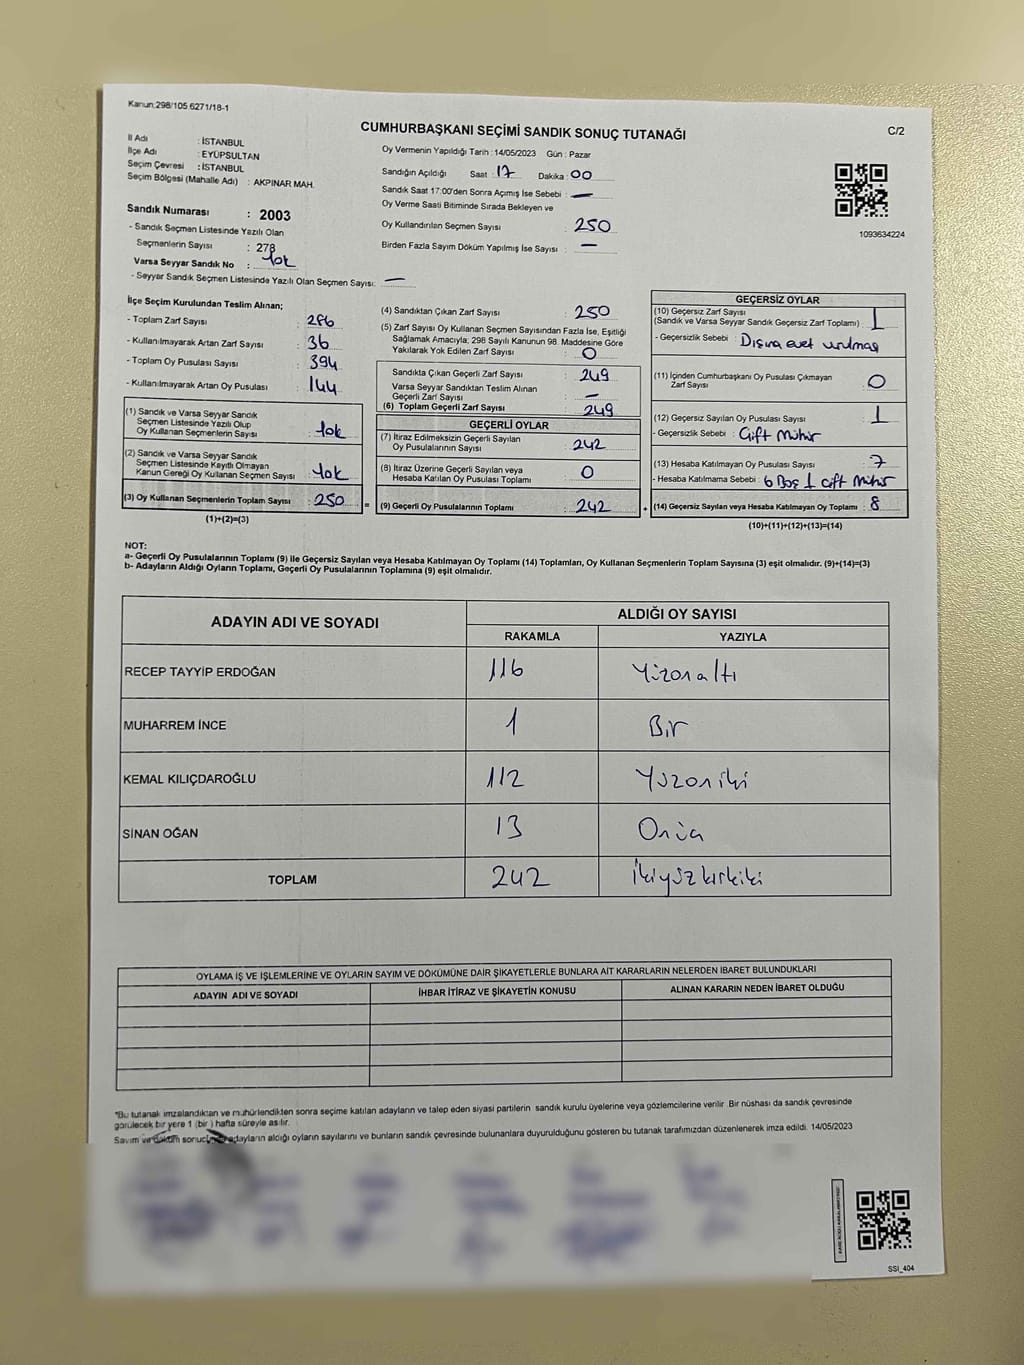 Kanun:298/105 6271/18-1
C/2
CUMHURBAŞKANI SEÇİMİ SANDIK SONUÇ TUTANAĞI
İl Adı : İSTANBUL
İlçe Adı : EYÜPSULTAN
Seçim Çevresi : İSTANBUL
Seçim Bölgesi (Mahalle Adı) : AKPINAR MAH.
Sandık Numarası : 2003
- Sandık Seçmen Listesinde Yazılı Olan
Seçmenlerin Sayısı : 278
Varsa Seyyar Sandık No : Yok
- Seyyar Sandık Seçmen Listesinde Yazılı Olan Seçmen Sayısı: —
Oy Vermenin Yapıldığı Tarih : 14/05/2023 Gün : Pazar
Sandığın Açıldığı Saat : 17 Dakika : 00
Sandık Saat 17:00'den Sonra Açımış İse Sebebi : —
Oy Verme Saati Bitiminde Sırada Bekleyen ve
Oy Kullandırılan Seçmen Sayısı : 250
Birden Fazla Sayım Döküm Yapılmış İse Sayısı : —
1093634224
İlçe Seçim Kurulundan Teslim Alınan;
- Toplam Zarf Sayısı : 286
- Kullanılmayarak Artan Zarf Sayısı : 36
- Toplam Oy Pusulası Sayısı : 394
- Kullanılmayarak Artan Oy Pusulası : 144
(1) Sandık ve Varsa Seyyar Sandık
Seçmen Listesinde Yazılı Olup
Oy Kullanan Seçmenlerin Sayısı : Yok
(2) Sandık ve Varsa Seyyar Sandık
Seçmen Listesinde Kayıtlı Olmayan
Kanun Gereği Oy Kullanan Seçmen Sayısı : Yok
(3) Oy Kullanan Seçmenlerin Toplam Sayısı : 250 =
(1)+(2)=(3)
(4) Sandıktan Çıkan Zarf Sayısı : 250
(5) Zarf Sayısı Oy Kullanan Seçmen Sayısından Fazla İse, Eşitliği
Sağlamak Amacıyla; 298 Sayılı Kanunun 98. Maddesine Göre
Yakılarak Yok Edilen Zarf Sayısı : 0
Sandıkta Çıkan Geçerli Zarf Sayısı : 249
Varsa Seyyar Sandıktan Teslim Alınan
Geçerli Zarf Sayısı : —
(6) Toplam Geçerli Zarf Sayısı : 249
GEÇERLİ OYLAR
(7) İtiraz Edilmeksizin Geçerli Sayılan
Oy Pusulasının Sayısı : 242
(8) İtiraz Üzerine Geçerli Sayılan veya
Hesaba Katılan Oy Pusulası Toplamı : 0
(9) Geçerli Oy Pusulalarının Toplamı : 242 +
GEÇERSİZ OYLAR
(10) Geçersiz Zarf Sayısı
(Sandık ve Varsa Seyyar Sandık Geçersiz Zarf Toplamı) : 1
- Geçersizlik Sebebi : Dışına evet vurulmaş
(11) İçinden Cumhurbaşkanı Oy Pusulası Çıkmayan
Zarf Sayısı : 0
(12) Geçersiz Sayılan Oy Pusulası Sayısı : 1
- Geçersizlik Sebebi : Çift Mühür
(13) Hesaba Katılmayan Oy Pusulası Sayısı : 7
- Hesaba Katılmama Sebebi : 6 Boş 1 Çift Mühür
(14) Geçersiz Sayılan veya Hesaba Katılmayan Oy Toplamı : 8
(10)+(11)+(12)+(13)=(14)
NOT:
a- Geçerli Oy Pusulalarının Toplamı (9) ile Geçersiz Sayılan veya Hesaba Katılmayan Oy Toplamı (14) Toplamları, Oy Kullanan Seçmenlerin Toplam Sayısına (3) eşit olmalıdır. (9)+(14)=(3)
b- Adayların Aldığı Oyların Toplamı, Geçerli Oy Pusulalarının Toplamına (9) eşit olmalıdır.
ADAYIN ADI VE SOYADI
ALDIĞI OY SAYISI
RAKAMLA YAZIYLA
RECEP TAYYİP ERDOĞAN 116 Yüzonaltı
MUHARREM İNCE 1 Bir
KEMAL KILIÇDAROĞLU 112 Yüzoniki
SİNAN OĞAN 13 Onüç
TOPLAM 242 İkiyüzkırkiki
OYLAMA İŞ VE İŞLEMLERİNE VE OYLARIN SAYIM VE DÖKÜMÜNE DAİR ŞİKAYETLERLE BUNLARA AİT KARARLARIN NELERDEN İBARET BULUNDUKLARI
ADAYIN ADI VE SOYADI İHBAR İTİRAZ VE ŞİKAYETİN KONUSU ALINAN KARARIN NEDEN İBARET OLDUĞU
*Bu tutanak imzalandıktan ve mühürlendikten sonra seçime katılan adayların ve talep eden siyasi partilerin sandık kurulu üyelerine veya gözlemcilerine verilir. Bir nüshası da sandık çevresinde
görülecek bir yere 1 (bir) hafta süreyle asılır.
Sayım ve döküm adayların aldığı oyların sayılarını ve bunların sandık çevresinde bulunanlara duyurulduğunu gösteren bu tutanak tarafımızdan düzenlenerek imza edildi. 14/05/2023
SSI_404